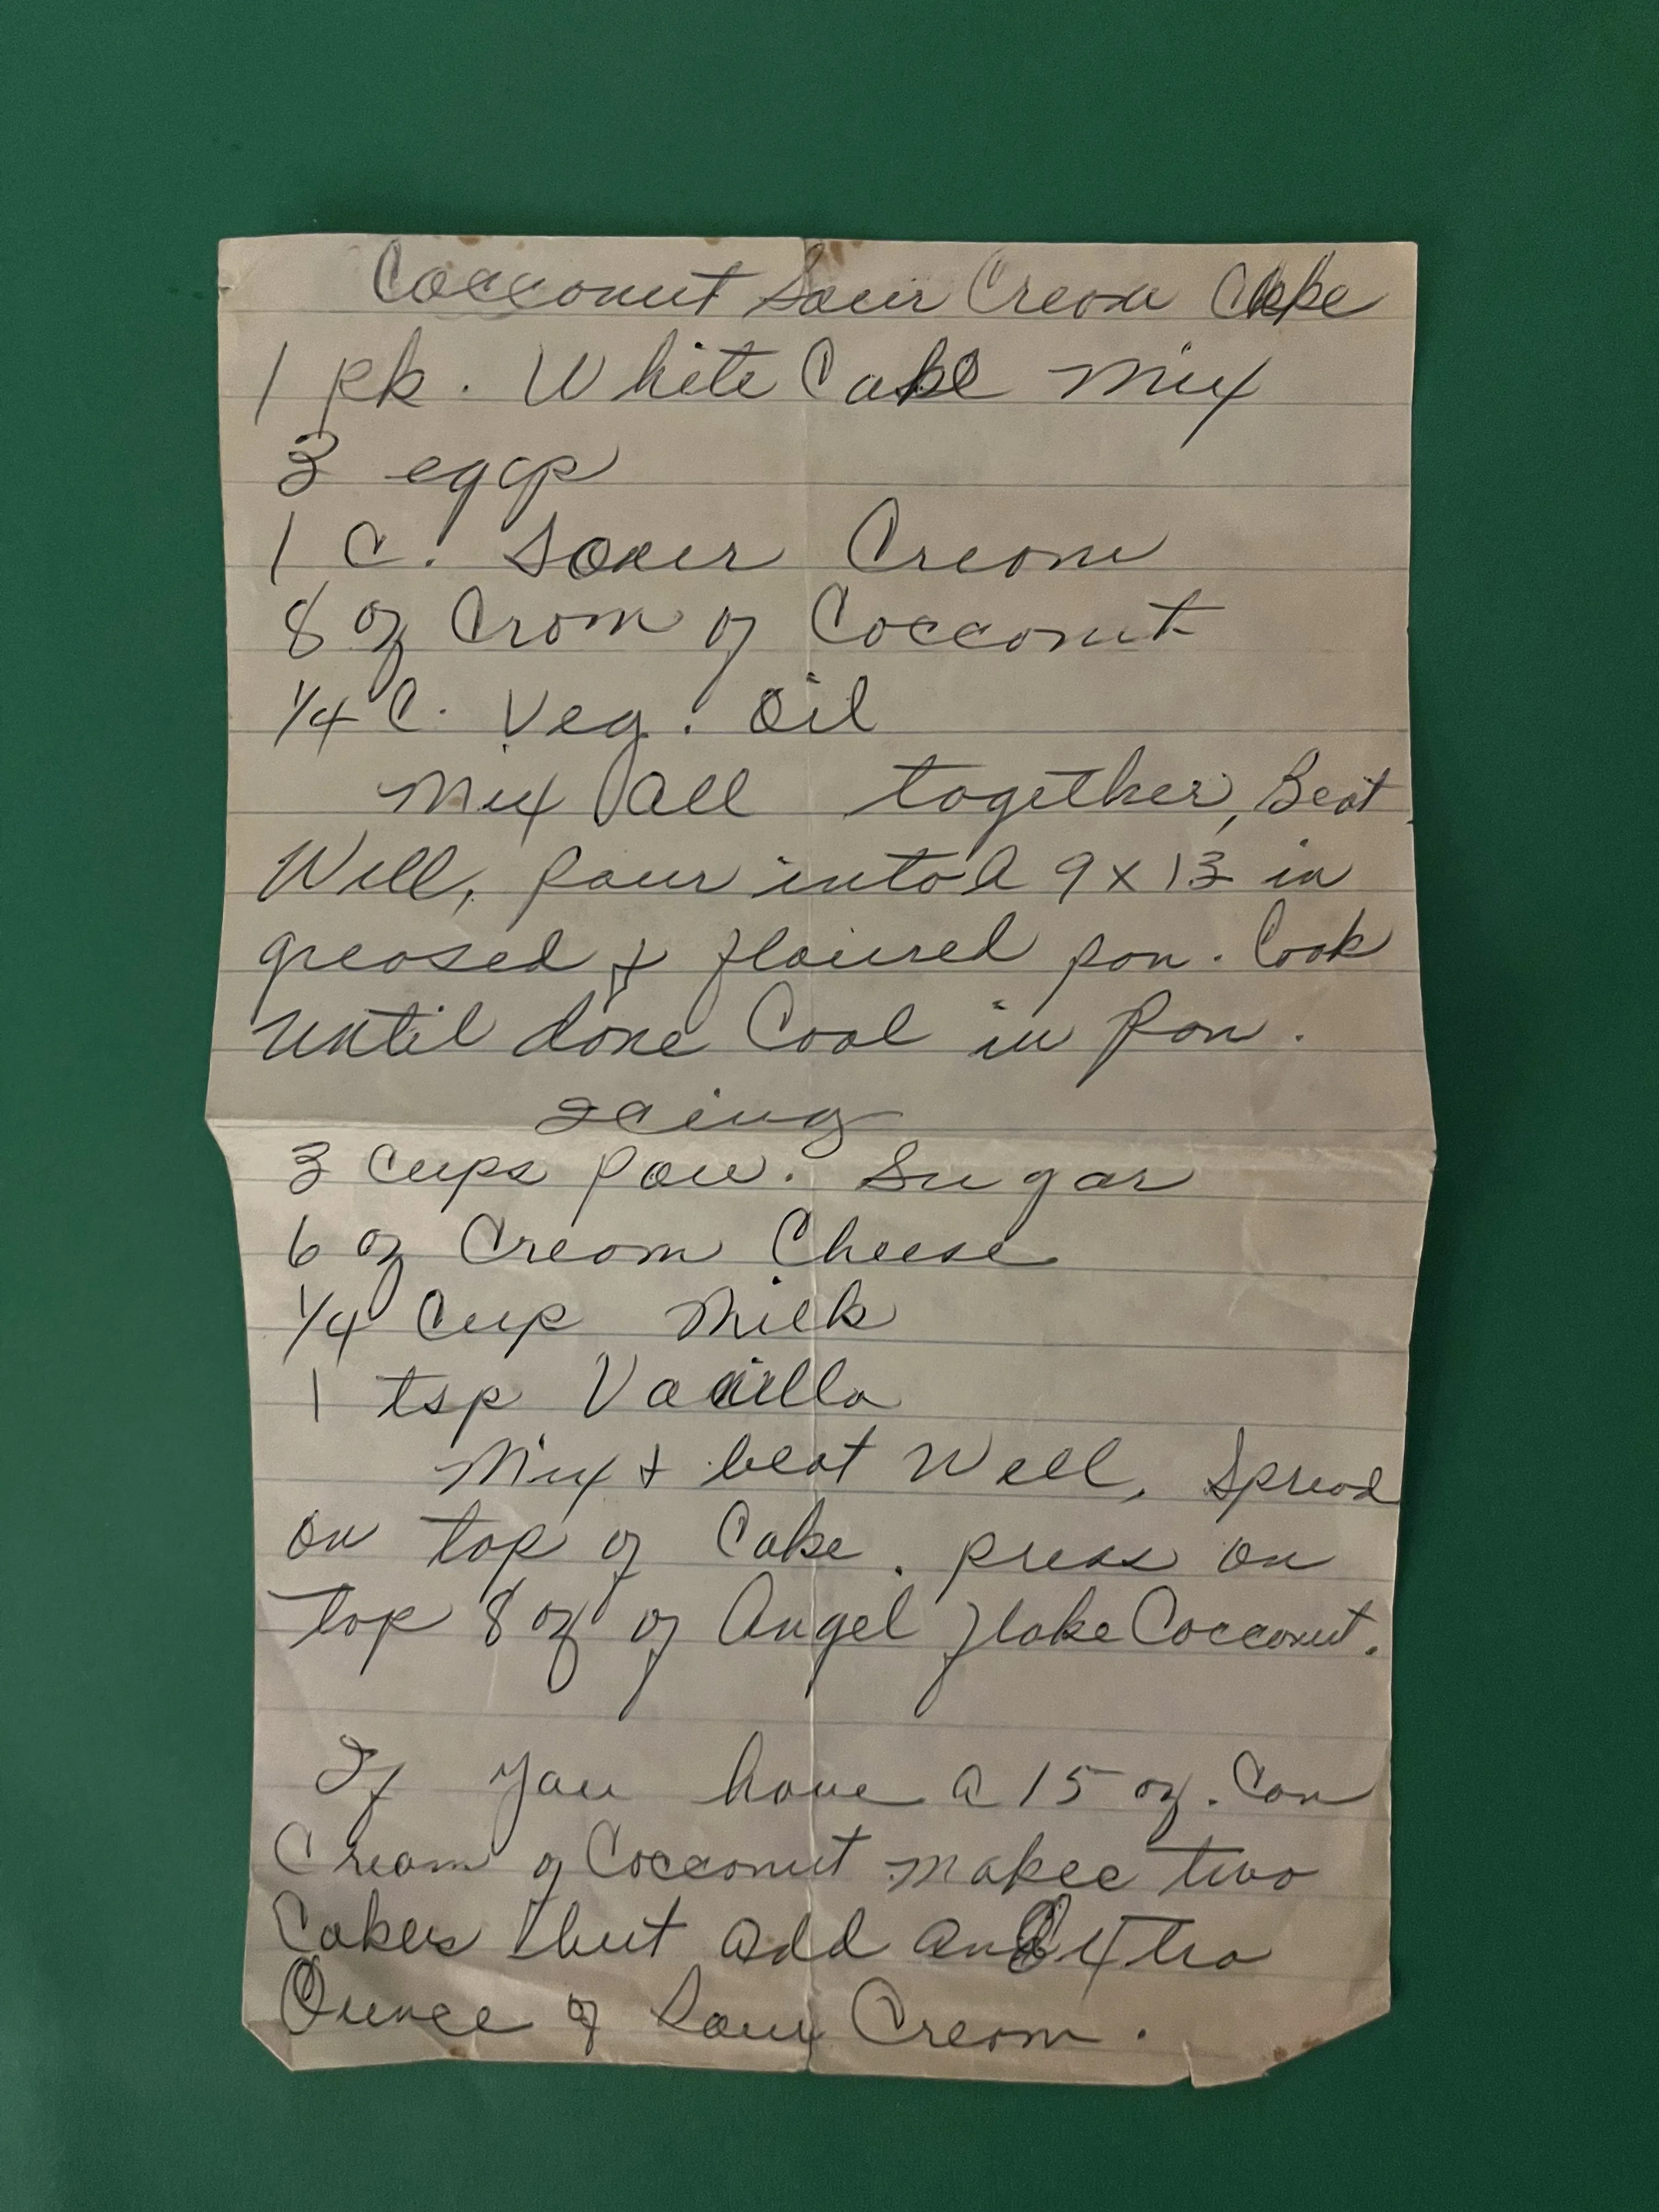 Cocconut Sour Cream Cake
1 pk. White Cake Mix
3 eggs
1 C. Sour Cream
8 oz Crom of Cocconut
1/4 C. Veg. Oil
Mix All together, Beat
Well, Pour into A 9 x 13 in
greased & floured pan. Cook
until done Cool in Pan.
Icing
3 Cups Pow. Sugar
6 oz Cream Cheese
1/4 Cup Milk
1 tsp Vanilla
Mix & beat Well, Spread
on top of Cake. press on
top 8 oz of Angel flake Cocconut.
If you have a 15 oz. Can
Cream of Cocconut makee two
Cakes but add an Extra
Ounce of Sour Cream.